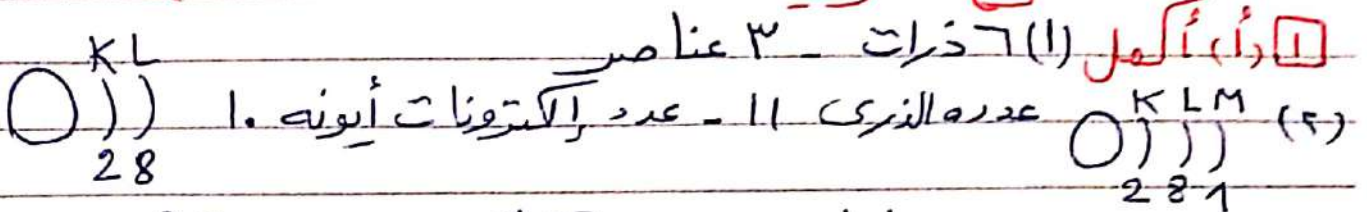 ١ (أ) أكمل (١) ٦ ذرات - ٣ عناصر
(٢) K L M عدده الذرى ١١ - عدد إلكترونات أيونه ١٠ K L
2 8 1 2 8